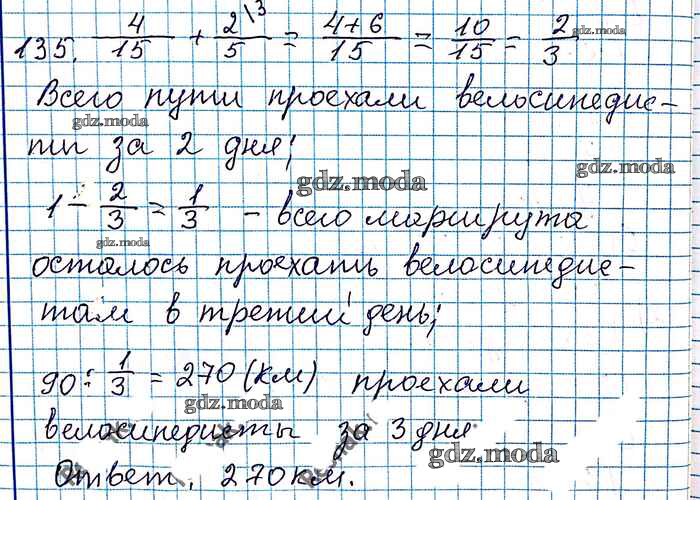 135. 4/15 + 2\3/5 = 4+6/15 = 10/15 = 2/3
gdz.moda
Всего пути проехали велосипедис-
gdz.moda
ты за 2 дня;
gdz.moda
gdz.moda
1 - 2/3 = 1/3 - всего маршрута
gdz.moda
осталось проехать велосипедис-
там в третий день;
90 : 1/3 = 270 (км) проехали
gdz.moda
велосипедисты за 3 дня
gdz.moda
Ответ. 270 км.